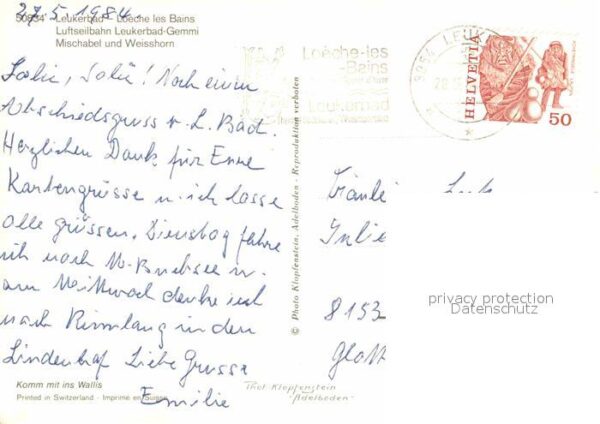 27.5.1984.
50834 Leukerbad - Loèche les Bains
Luftseilbahn Leukerbad-Gemmi
Mischabel und Weisshorn
Salü, Salü! Noch einen
Abschiedsgruss v. L. Bad.
Herzlichen Dank für Eure
Kartengrüsse u. ich lasse
alle grüssen. Dienstag fahre
ich nach
am Mittwoch denke ich
nach Rümlang in den
Lindenhof Liebe Grüsse
Emilie
Komm mit ins Wallis
Printed in Switzerland - Imprimé en Suisse
© Photo Klopfenstein, Adelboden - Reproduktion verboten
Phot Klopfenstein
"Adelboden"
Loèche-les
-Bains
Leukerbad
3954 LEUKE
HELVETIA
50
8153
privacy protection
Datenschutz